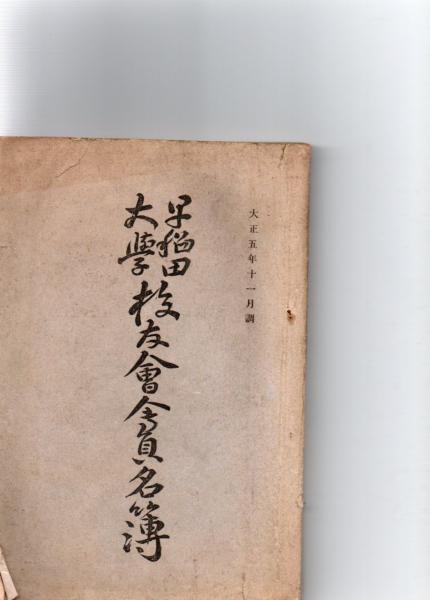 大正五年十一月調
早稲田
大學
校友會會員名簿